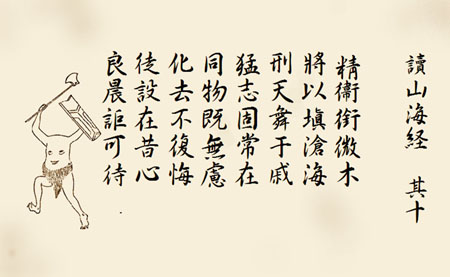 讀山海経 其十
精衞銜微木
將以塡滄海
刑天舞干戚
猛志固常在
同物既無慮
化去不復悔
徒設在昔心
良晨詎可待